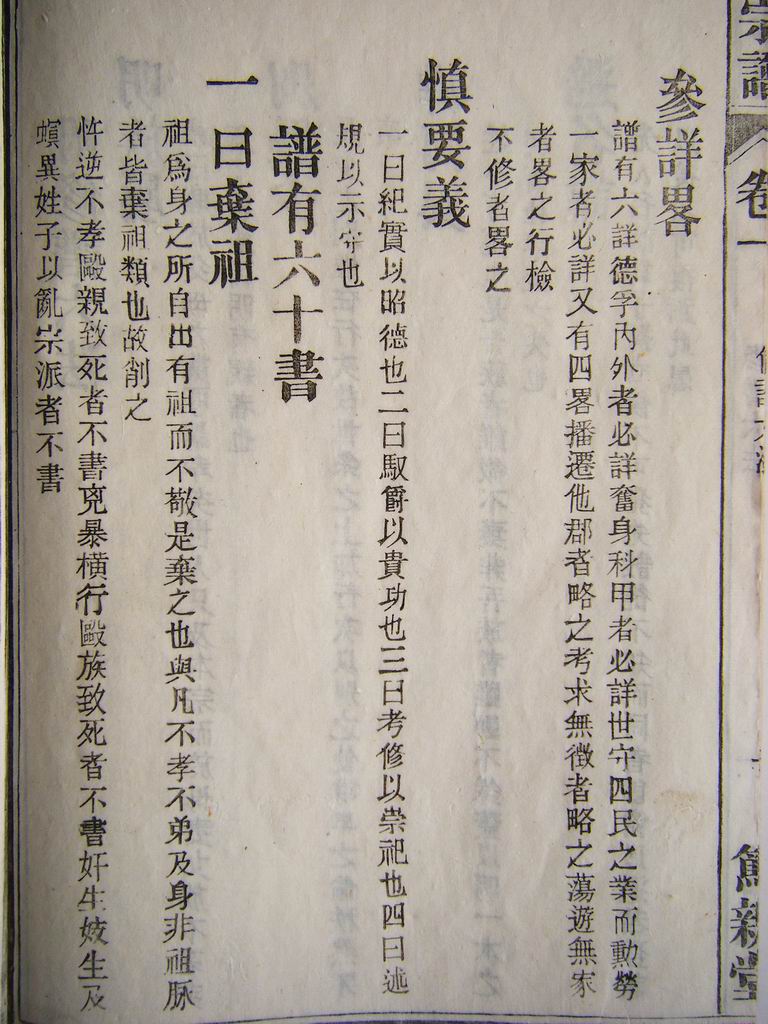 宗譜
卷一
參詳畧
譜有六詳德孚內外者必詳奮身科甲者必詳世守四民之業而勳勞
一家者必詳又有四畧播遷他郡者略之考求無徵者略之蕩遊無家
者畧之行檢
不修者畧之
慎要義
一曰紀實以昭德也二曰馭爵以貴功也三曰考修以崇祀也四曰述
規以示守也
譜有六十書
一曰棄祖
祖爲身之所自出有祖而不敬是棄之也與凡不孝不弟及身非祖脉
者皆棄祖類也故削之
忤逆不孝毆親致死者不書兇暴橫行毆族致死者不書奸生妓生及
螟異姓子以亂宗派者不書
親堂